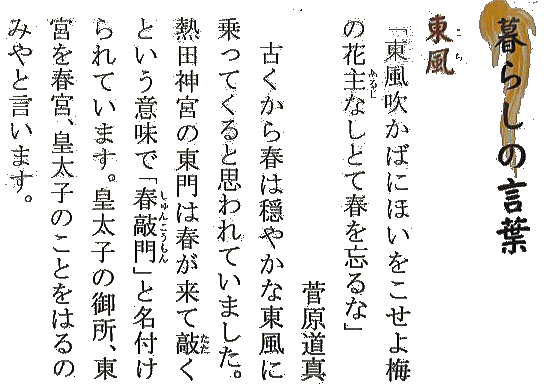 暮らしの言葉
東風
こち
「東風吹かばにほいをこせよ梅
の花主なしとて春を忘るな」
あるじ
菅原道真
古くから春は穏やかな東風に
乗ってくると思われていました。
熱田神宮の東門は春が来て敲く
たた
という意味で「春敲門」と名付け
しゅんこうもん
られています。皇太子の御所、東
宮を春宮、皇太子のことをはるの
みやと言います。